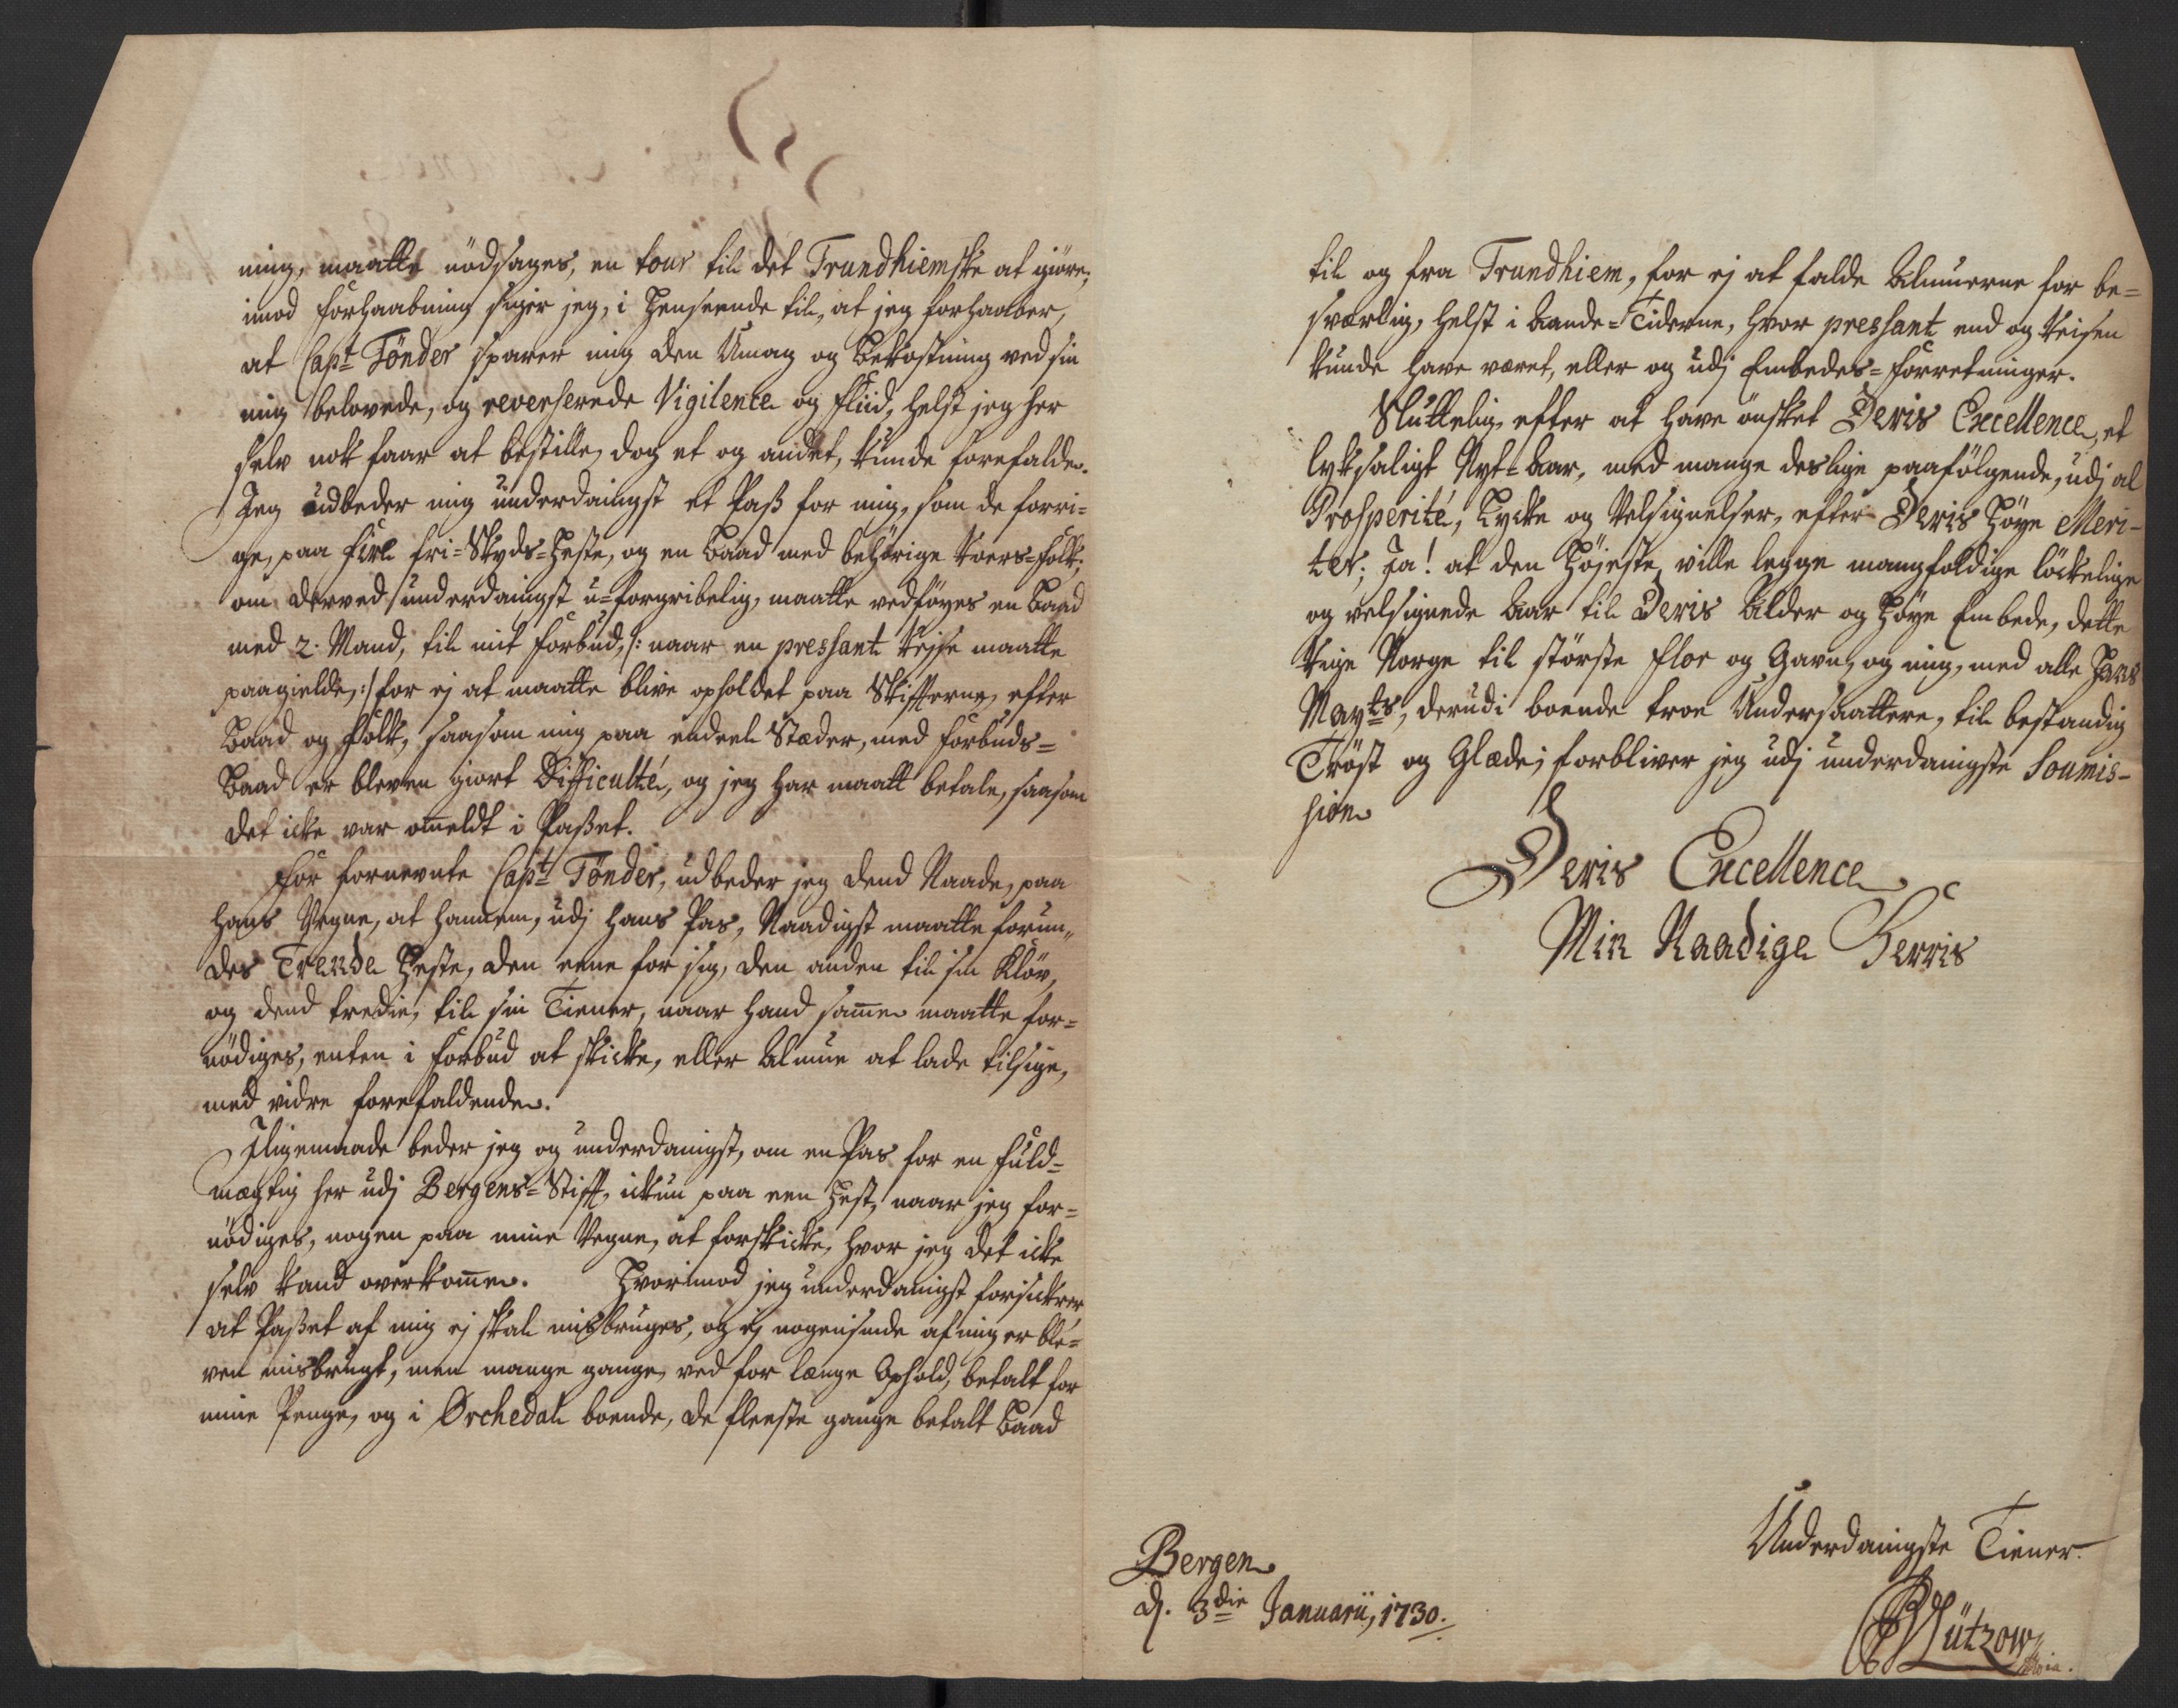 ning, maatte nödsages, en tour til det Trundhiemske at giöre;
imod forhaabning siger jeg, i Henseende til, at jeg forhaaber,
at Capt Tönder sparer mig den Umag og Bekostning ved sin
mig belovede, og reverserede Vigilence og Fliid, helst jeg her
selv nok faar at bestille, dog et og andet, kunde forefalde.
Jeg udbeder mig underdanigst et Pass for mig, som de forri-
ge, paa fire fri-Skyds-Heste, og en Baad med behörige Roers-Folk;
om derved underdanigst u-forgribelig, maatte vedföyes en Baad
med 2. Mand, til mit Forbud, /: naar en pressant Rejse maatte
paagielde, :/ for ej at maatte blive opholdet paa Skifterne, efter
Baad og Folk, saasom mig paa endeel Stæder, med Forbuds-
Baad er bleven giort Difficulté, og jeg har maatt betale, saasom
det icke var om̅eldt i Passet.
For fornevnte Capt Tönder, udbeder jeg dend Naade, paa
hans Vegne, at hannem, udj hans Pas, Naadigst maatte forun-
des Trende Heste, den eene for sig, den anden til sin Klöv,
og dend tredie, til sin Tiener, naar hand sam̅e maatte for-
nödiges, enten i Forbud at skicke, eller Almue at lade tilsige,
med vidre forefaldende.
Iligemaade beder jeg og underdanigst, om en Pas for en Fuld-
mægtig her udj Bergens-Stift, ickun paa een Hest, naar jeg for-
nödiges, nogen paa mine Vegne, at forskicke, hvor jeg det icke
selv kand overkom̅e. Hvorimod jeg underdanigst forsickrer
at Passet af mig ej skal misbruges, og ej nogensinde af mig er ble-
ven misbrugt, men mange gange, ved for længe Ophold, betalt for
mine Penge, og i Orchedal boende, de fleeste gange betalt Baad
til og fra Trundhiem, for ej at falde Almuerne for be-
sværlig, helst i Aande-Tiderne, hvor pressant end og Reisen
kunde have været, eller og udj Embedes-Forretninger.
Sluttelig, efter at have önsket Deris Excellence, et
lyksaligt Nyt-Aar, med mange deslige paafölgende, udj al
Prosperité, Lycke og Velsignelser, efter Deris Höye Meri-
ter; Ja! at den Höjeste, ville legge mangfoldige löckelige
og velsignede Aar til Deris Alder og Höye Embede, dette
Rige Norge til störste Flor og Gavn, og mig, med alle Hans
Mayts, derudi boende troe Undersaattere, til bestandig
Tröst og Glæde; forbliver jeg udj underdanigste Soumis-
sion
Deris Excellence
Min Naadige Herris
Underdanigste Tiener.
Bergen
d. 3die Januarii, 1730.
Lützow